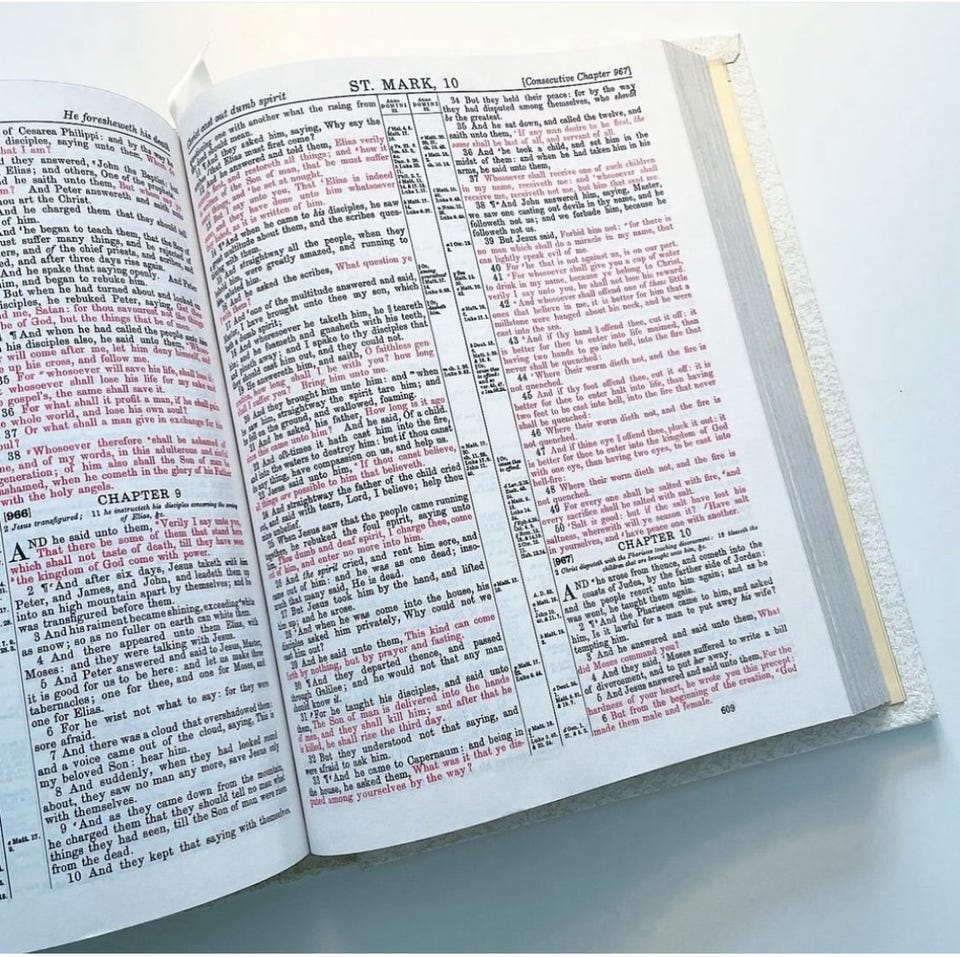 He foresheweth his death
of Cesarea Philippi: and by the way he
disciples, saying unto them, Whom
that I am?
d they answered, John the Baptist:
Elias; and others, One of the
he saith unto them, But whom
m? And Peter answereth and saith
ou art the Christ.
And he charged them that they should
of him.
And he began to teach them, that the Son
ust suffer many things, and be rejected
ers, and of the chief priests, and
and after three days rise again.
And he spake that saying openly.
him, and began to rebuke him.
But when he had turned about and looked
disciples, he rebuked Peter, saying, Get
nd me, Satan: for thou savourest not the things
be of God, but the things that be of men.
¶ And when he had called the people unto
his disciples also, he said unto them,
will come after me, let him deny himself
up his cross, and follow me.
35 For whosoever will save his life, shall
whosoever shall lose his life for my sake
gospel's, the same shall save it.
36 For what shall it profit a man, if he shall gain
whole world, and lose his own soul?
37 Or what shall a man give in exchange for his
oul?
38 Whosoever therefore shall be ashamed
me, and of my words, in this adulterous and sinful
generation; of him also shall the Son of man be
ashamed, when he cometh in the glory of his Father
with the holy angels.
CHAPTER 9
[966]
2 Jesus transfigured; 11 he instructeth his disciples concerning the coming
of Elias, &c.
AND he said unto them, Verily I say unto you,
That there be some of them that stand here
which shall not taste of death, till they have seen
the kingdom of God come with power.
2 ¶ And after six days, Jesus taketh with him
Peter, and James, and John, and leadeth them up
into an high mountain apart by themselves; and he
was transfigured before them.
3 And his raiment became shining, exceeding white
as snow; so as no fuller on earth can white them.
4 And there appeared unto them Elias, with
Moses: and they were talking with Jesus.
5 And Peter answered and said to Jesus, Master,
it is good for us to be here: and let us make three
tabernacles; one for thee, and one for Moses, and
one for Elias.
6 For he wist not what to say: for they were
sore afraid.
7 And there was a cloud that overshadowed them:
and a voice came out of the cloud, saying, This is
my beloved Son: hear him.
8 And suddenly, when they had looked round
about, they saw no man any more, save Jesus only
with themselves.
9 And as they came down from the mountain,
he charged them that they should tell no man what
things they had seen, till the Son of man were risen
from the dead.
10 And they kept that saying with themselves,
out dumb spirit
ST. MARK, 10
[Consecutive Chapter 967]
one with another what the rising from
mean.
they asked him, saying, Why say the
Elias must first come?
he answered and told them, Elias verily
restoreth all things; and how it
the Son of man, that he must suffer
be set at nought.
unto you, That Elias is indeed
they have done unto him whatsoever
as it is written of him.
¶ And when he came to his disciples, he saw
multitude about them, and the scribes ques-
with them.
straightway all the people, when they
were greatly amazed, and running to
him.
asked the scribes, What question ye
one of the multitude answered and said
I have brought unto thee my son, which
dumb spirit;
wheresoever he taketh him, he teareth
and he foameth and gnasheth with his teeth,
away; and I spake to thy disciples that
should cast him out, and they could not.
He answereth him, and saith, O faithless gen-
long shall I be with you? how long
suffer you? Bring him unto me.
they brought him unto him: and when
straightway the spirit tare him; and
on the ground, and wallowed, foaming.
he asked his father, How long is it ago
came unto him? And he said, Of a child.
oft-times it hath cast him into the fire,
the waters to destroy him: but if thou canst
have compassion on us, and help us.
Jesus said unto him, If thou canst believe,
are possible to him that believeth.
straightway the father of the child cried
said with tears, Lord, I believe; help thou
When Jesus saw that the people came running
rebuked the foul spirit, saying unto
dumb and deaf spirit, I charge thee, come
him, and enter no more into him.
the spirit cried, and rent him sore, and
out of him: and he was as one dead; inso-
that many said, He is dead.
But Jesus took him by the hand, and lifted
and he arose.
when he was come into the house, his
asked him privately, Why could not we
him out?
he said unto them, This kind can come
forth by nothing, but by prayer and fasting.
30 ¶ And they departed thence, and passed
through Galilee; and he would not that any man
should know it.
31 For he taught his disciples, and said unto
them, The Son of man is delivered into the hands
of men, and they shall kill him; and after that he
is killed, he shall rise the third day.
32 But they understood not that saying, and
were afraid to ask him.
33 ¶ And he came to Capernaum: and being in
the house, he asked them, What was it that ye dis-
puted among yourselves by the way?
34 But they held their peace: for by the way
they had disputed among themselves, who should
be the greatest.
35 And he sat down, and called the twelve, and
saith unto them, If any man desire to be first, the
same shall be last of all, and servant of all.
36 And he took a child, and set him in the
midst of them: and when he had taken him in his
arms, he said unto them,
37 Whosoever shall receive one of such children
in my name, receiveth me: and whosoever shall
receive me, receiveth not me, but him that sent me.
38 ¶ And John answered him, saying, Master,
we saw one casting out devils in thy name, and he
followeth not us; and we forbade him, because he
followeth not us.
39 But Jesus said, Forbid him not: for there is
no man which shall do a miracle in my name, that
can lightly speak evil of me.
40 For he that is not against us, is on our part.
41 For whosoever shall give you a cup of water
to drink in my name, because ye belong to Christ,
verily I say unto you, he shall not lose his reward.
42 And whosoever shall offend one of these little
ones that believe in me, it is better for him that a
millstone were hanged about his neck, and he were
cast into the sea.
43 And if thy hand offend thee, cut it off: it
is better for thee to enter into life maimed, than
having two hands to go into hell, into the fire that
never shall be quenched:
44 Where their worm dieth not, and the fire is
not quenched.
45 And if thy foot offend thee, cut it off: it is
better for thee to enter halt into life, than having
two feet to be cast into hell, into the fire that never
shall be quenched:
46 Where their worm dieth not, and the fire is
not quenched.
47 And if thine eye offend thee, pluck it out: it
is better for thee to enter into the kingdom of God
with one eye, than having two eyes, to be cast into
hell-fire:
48 Where their worm dieth not, and the fire is
not quenched.
49 For every one shall be salted with fire, and
every sacrifice shall be salted with salt.
50 Salt is good: but if the salt have lost his
saltness, wherewith will ye season it? Have salt
in yourselves, and have peace one with another.
CHAPTER 10
[967]
2 Christ disputeth with the Pharisees touching divorcement: 13 blesseth the
children that are brought unto him, &c.
AND he arose from thence, and cometh into the
coasts of Judea, by the farther side of Jordan:
and the people resort unto him again; and as he
was wont, he taught them again.
2 ¶ And the Pharisees came to him, and asked
him, Is it lawful for a man to put away his wife?
tempting him.
3 And he answered and said unto them, What
did Moses command you?
4 And they said, Moses suffered to write a bill
of divorcement, and to put her away.
5 And Jesus answered and said unto them, For the
hardness of your heart, he wrote you this precept:
6 But from the beginning of the creation, God
made them male and female.
609